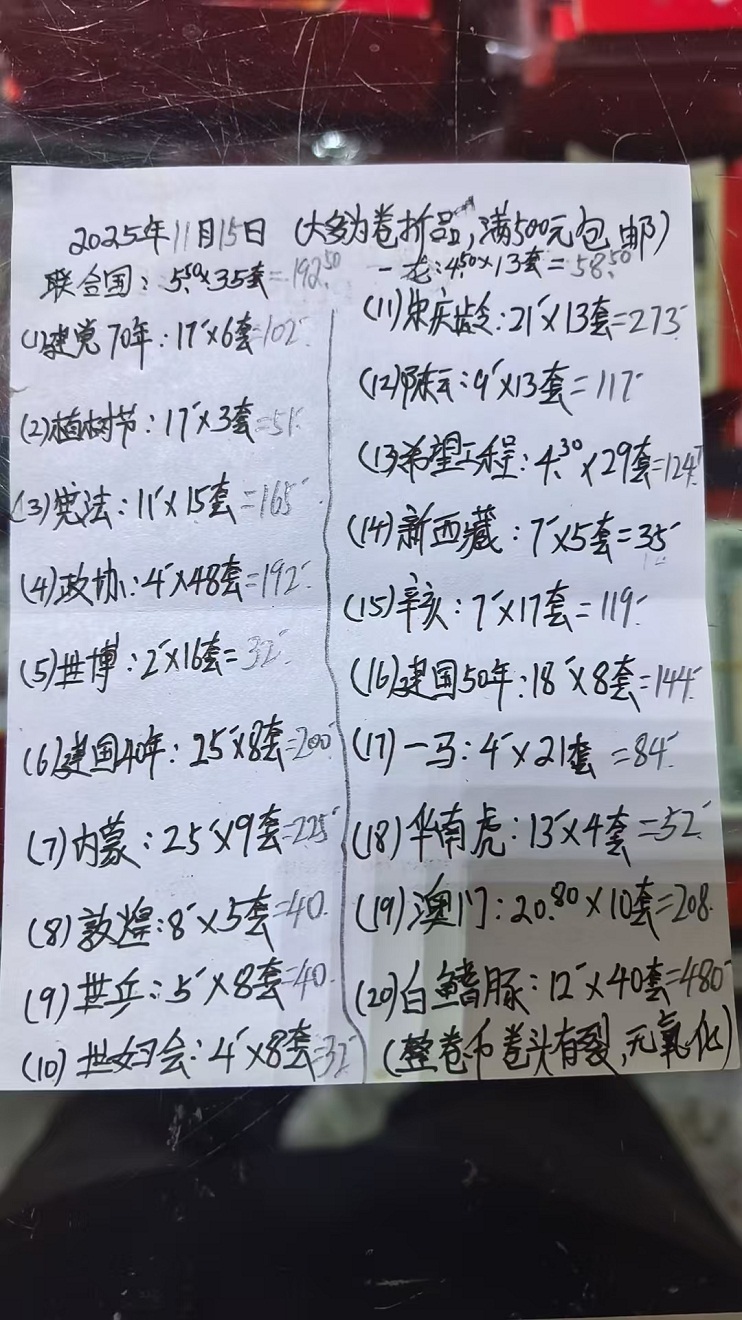 2025年11月15日 (大多为卷拆品,满500元包邮)
联合国:5.50×35套=192.50
一龙:4.50×13套=58.50
(1)建党70年:17×6套=102
(2)植树节:17×3套=51
(3)宪法:11×15套=165
(4)政协:4×48套=192
(5)世博:2×16套=32
(6)建国40年:25×8套=200
(7)内蒙:25×9套=225
(8)敦煌:8×5套=40
(9)世乒:5×8套=40
(10)世妇会:4×8套=32
(11)宋庆龄:21×13套=273
(12)陈云:9×13套=117
(13)希望工程:4.30×29套=124
(14)新西藏:7×5套=35
(15)辛亥:7×17套=119
(16)建国50年:18×8套=144
(17)一马:4×21套=84
(18)华南虎:13×4套=52
(19)澳门:20.80×10套=208
(20)白鳍豚:12×40套=480
(整卷币卷头有裂,无氧化)